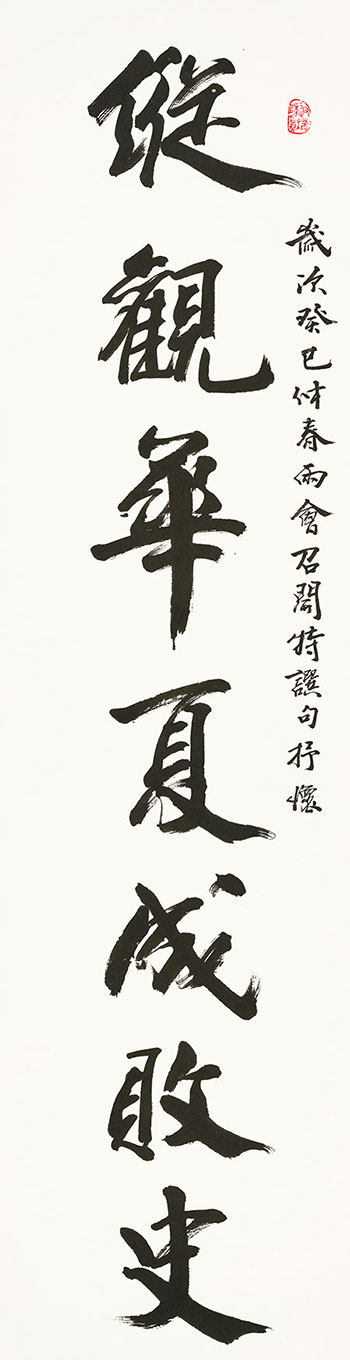 歲次癸巳仲春兩會召開特譔句抒懷
縱觀華夏成敗史